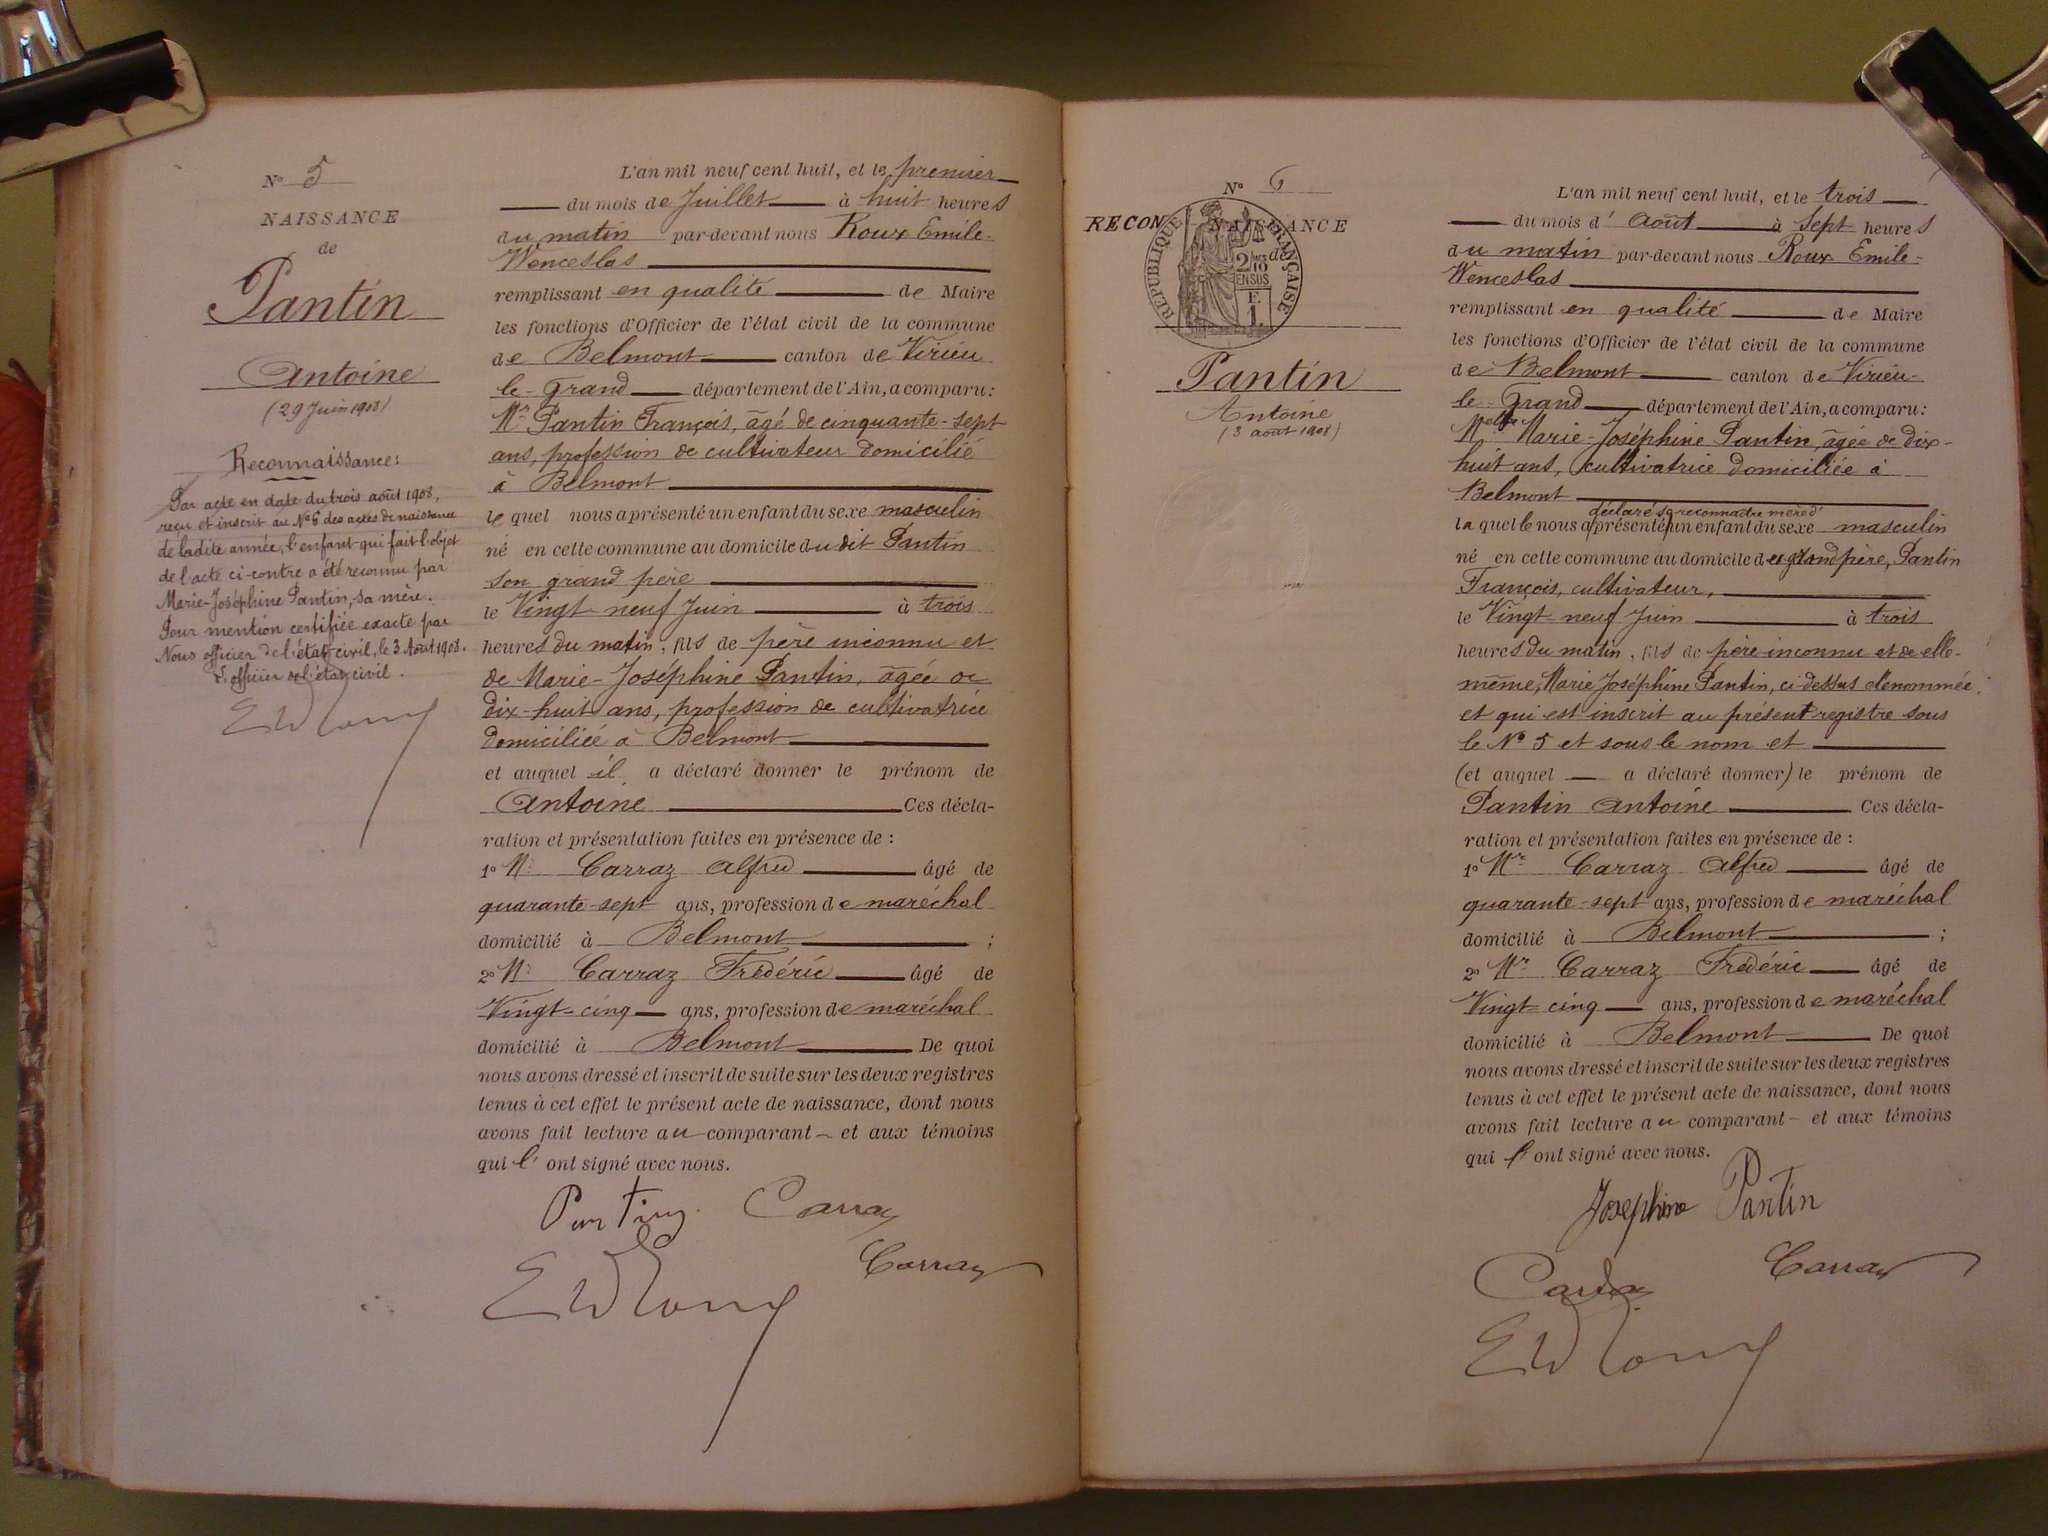 Nº 5
NAISSANCE
de
Pantin
Antoine
(29 Juin 1908)
Reconnaissance:
Par acte en date du trois août 1908,
reçu et inscrit au Nº 6 des actes de naissance
de ladite année, l'enfant qui fait l'objet
de l'acte ci-contre a été reconnu par
Marie-Joséphine Pantin, sa mère.
Pour mention certifiée exacte par
Nous officier de l'état civil, le 3 Août 1908.
L'officier de l'état civil.
L'an mil neuf cent huit, et le premier
du mois de Juillet à huit heures
du matin par-devant nous Roux Emile-
Wenceslas
remplissant en qualité de Maire
les fonctions d'Officier de l'état civil de la commune
de Belmont canton de Virieu
le-Grand département de l'Ain, a comparu:
Mr Pantin François, âgé de cinquante-sept
ans, profession de cultivateur domicilié
à Belmont
le quel nous a présenté un enfant du sexe masculin
né en cette commune au domicile du dit Pantin
son grand père
le Vingt-neuf Juin à trois
heures du matin, fils de père inconnu et
de Marie-Joséphine Pantin, âgée de
dix-huit ans, profession de cultivatrice
domiciliée à Belmont
et auquel il a déclaré donner le prénom de
Antoine Ces décla-
ration et présentation faites en présence de :
1º Mr Carraz Alfred âgé de
quarante-sept ans, profession de maréchal
domicilié à Belmont ;
2º Mr Carraz Frédéric âgé de
Vingt-cinq ans, profession de maréchal
domicilié à Belmont De quoi
nous avons dressé et inscrit de suite sur les deux registres
tenus à cet effet le présent acte de naissance, dont nous
avons fait lecture au comparant et aux témoins
qui l'ont signé avec nous.
Carraz
Carraz
Nº 6
RECON NAISSANCE
de
RÉPUBLIQUE FRANÇAISE
2/10
EN SUS
E.
1.
Pantin
Antoine
(3 août 1908)
L'an mil neuf cent huit, et le trois
du mois d' Août à sept heures
du matin par-devant nous Roux Emile-
Wenceslas
remplissant en qualité de Maire
les fonctions d'Officier de l'état civil de la commune
de Belmont canton de Virieu-
le-Grand département de l'Ain, a comparu:
Melle Marie-Joséphine Pantin, âgée de dix-
huit ans, cultivatrice domiciliée à
Belmont
déclaré se reconnaître mère d'
la quelle nous a présenté un enfant du sexe masculin
né en cette commune au domicile de grand père, Pantin
François, cultivateur,
le Vingt-neuf Juin à trois
heures du matin, fils de père inconnu et de elle-
même, Marie Joséphine Pantin, ci-dessus dénommée,
et qui est inscrit au présent registre sous
le Nº 5 et sous le nom et
(et auquel a déclaré donner) le prénom de
Pantin Antoine Ces décla-
ration et présentation faites en présence de :
1º Mr Carraz Alfred âgé de
quarante-sept ans, profession de maréchal
domicilié à Belmont ;
2º Mr Carraz Frédéric âgé de
Vingt-cinq ans, profession de maréchal
domicilié à Belmont De quoi
nous avons dressé et inscrit de suite sur les deux registres
tenus à cet effet le présent acte de naissance, dont nous
avons fait lecture au comparant et aux témoins
qui l'ont signé avec nous.
Josephine Pantin
Carraz